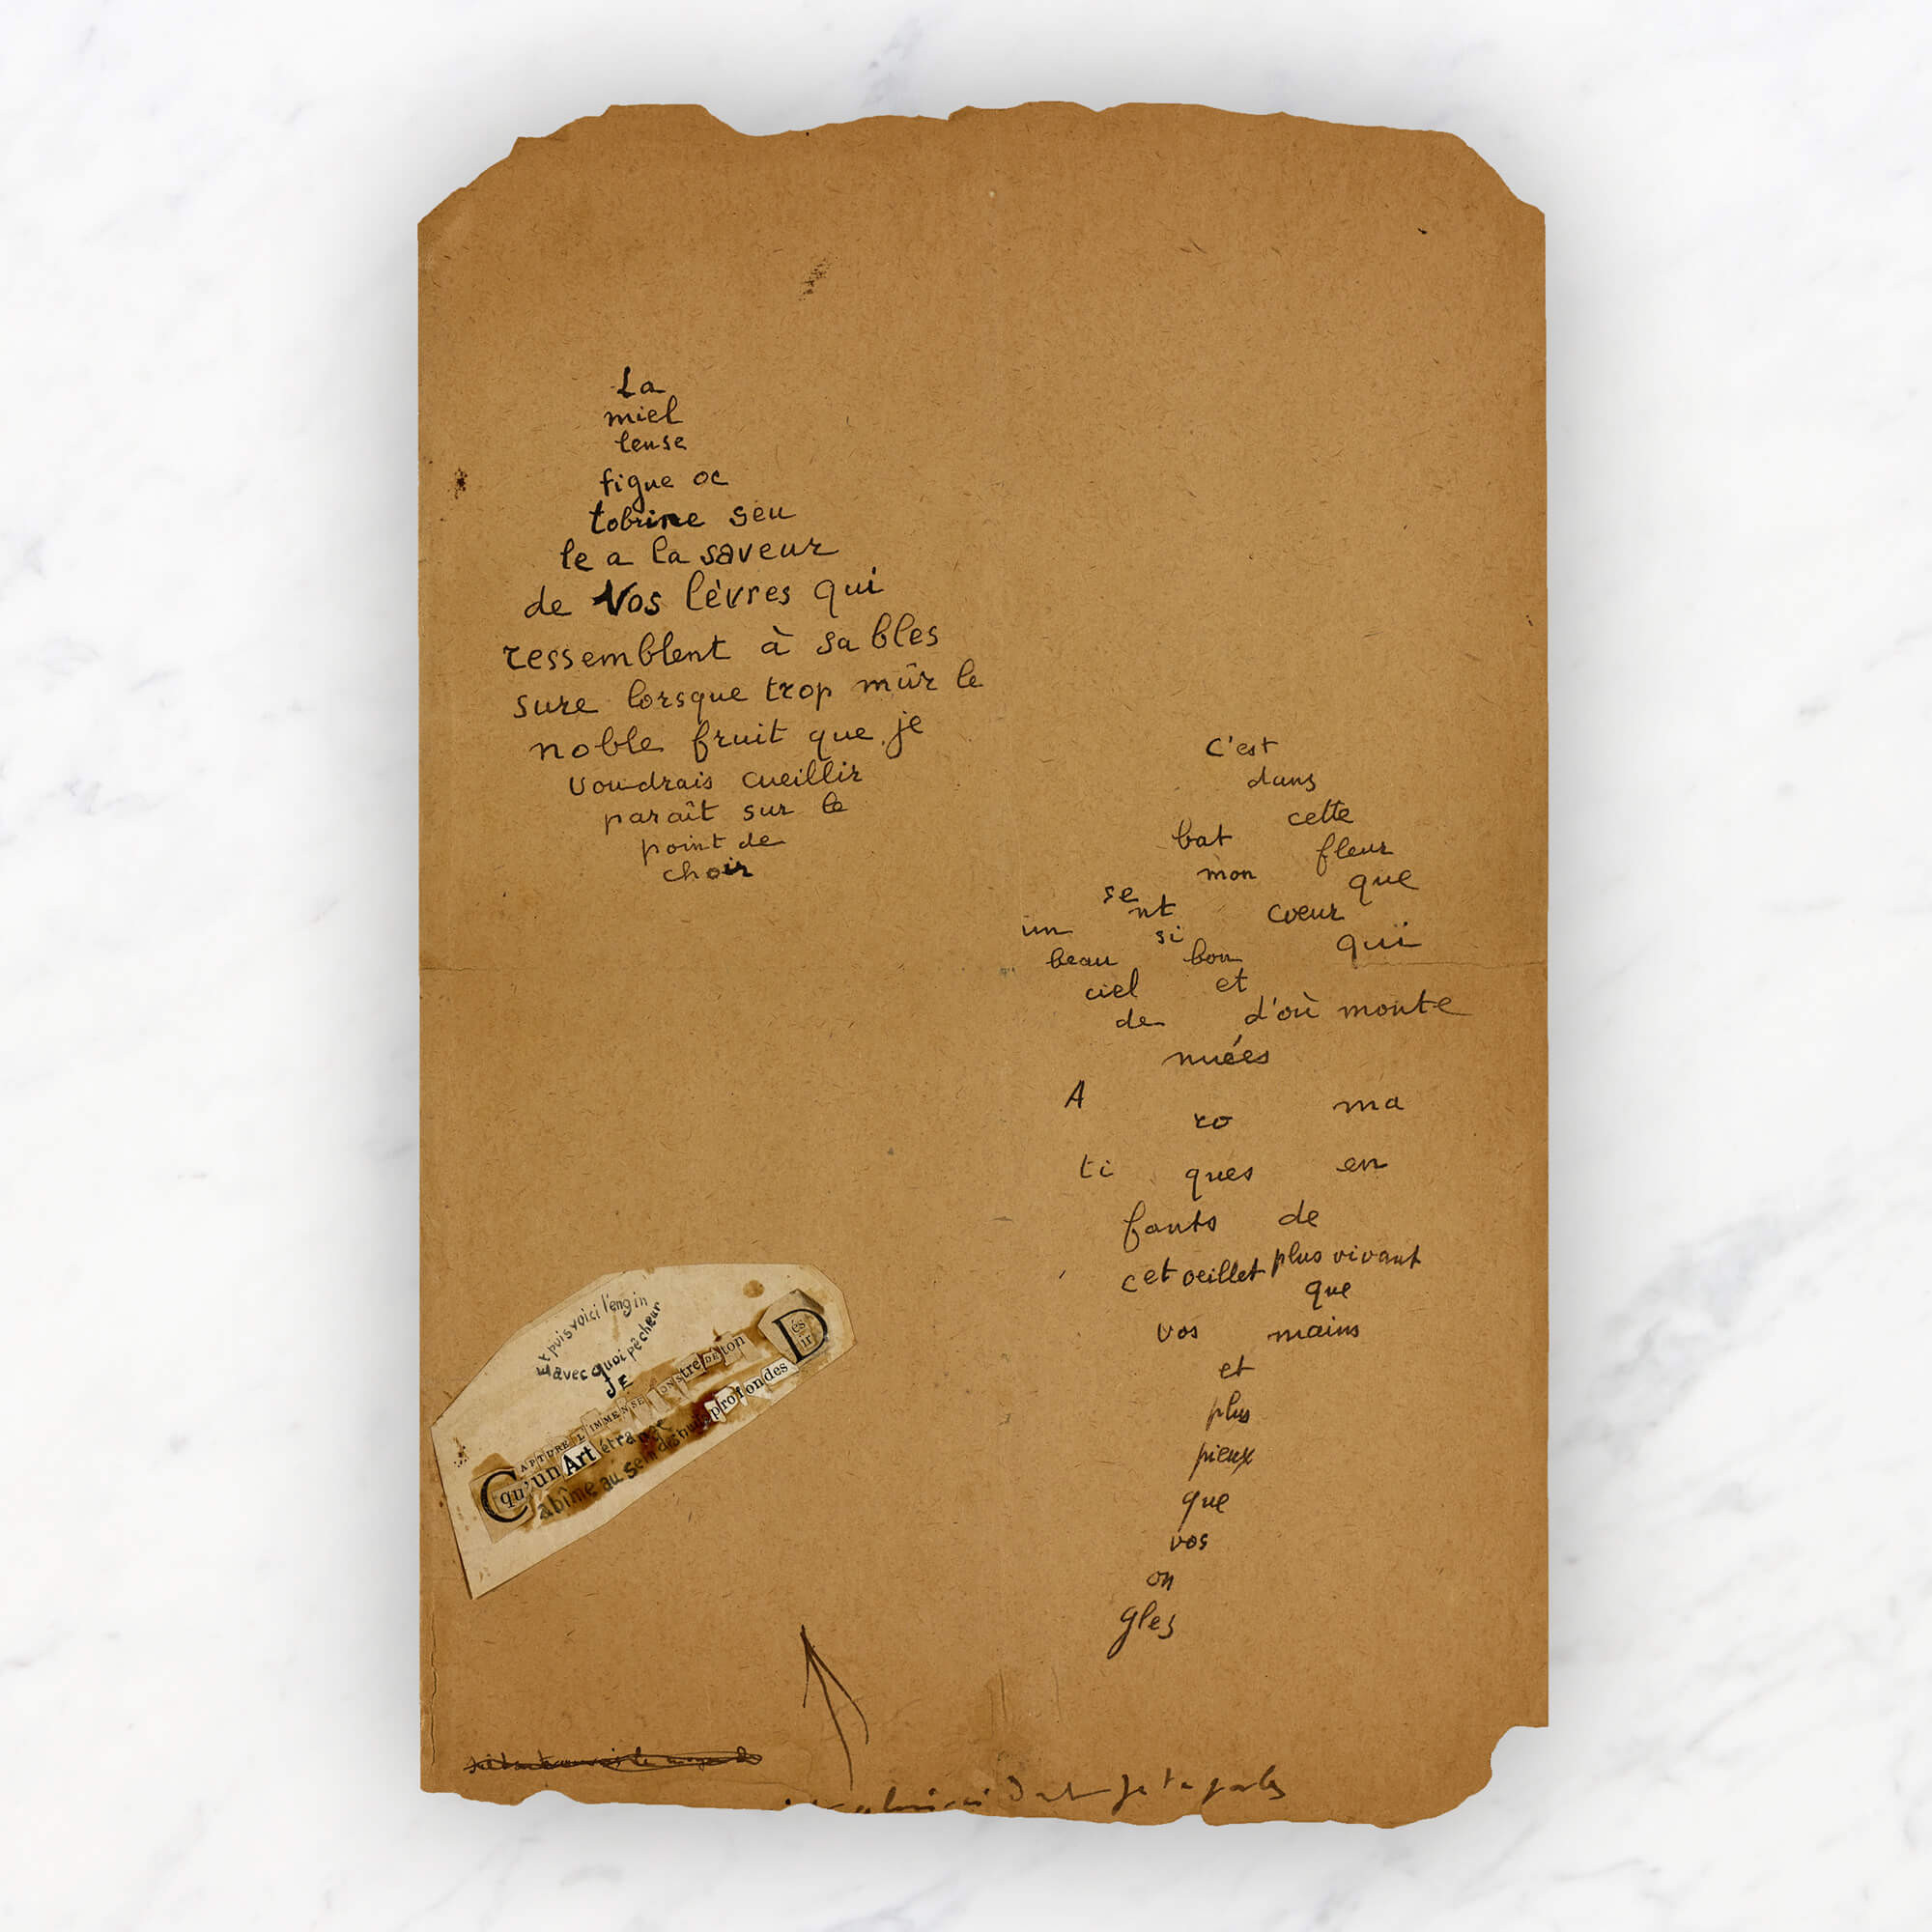 La
miel
leuse
figue oc
tobrine seu
le a la saveur
de Vos lèvres qui
ressemblent à sa bles
sure lorsque trop mûr le
noble fruit que je
voudrais cueillir
paraît sur le
point de
choir
C'est
dans
cette
fleur
que
bat
mon
cœur
qui
se
nt
si
bon
et
d'où monte
un
beau
ciel
de
nuées
A
ro
ma
ti
ques
en
fants
de
cet oeillet plus vivant
que
vos
mains
et
plus
pieux
que
vos
on
gles
Et puis voici l'engin
avec quoi pêcheur
JE
CAPTURE L'IMMENSE MONSTRE DE ton
Désir
qu'un Art étrange
abîme au sein des nuits profondes